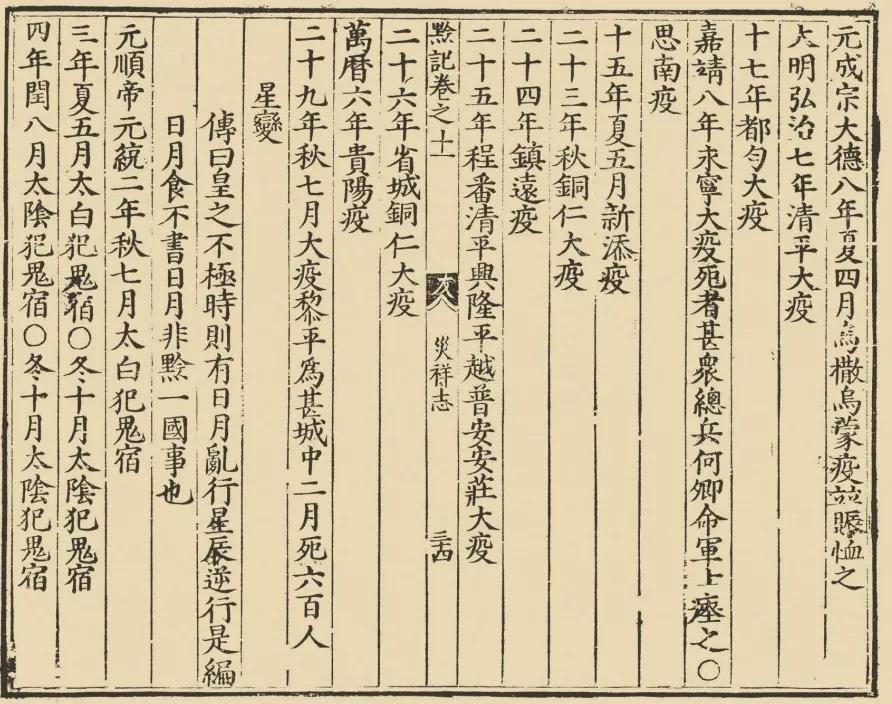 元成宗大德八年夏四月烏撒烏蒙疫並賑恤之
大明弘治七年清平大疫
十七年都勻大疫
嘉靖八年永寧大疫死者甚衆總兵何卿命軍士瘞之〇
思南疫
十五年夏五月新添疫
二十三年秋銅仁大疫
二十四年鎮遠疫
二十五年程番清平興隆平越普安安莊大疫
黔記卷之十一
災祥志
三四
二十六年省城銅仁大疫
萬曆六年貴陽疫
二十九年秋七月大疫黎平爲甚城中二月死六百人
星變
傳曰皇之不極時則有日月亂行星辰逆行是編
日月食不書日月非黔一國事也
元順帝元統二年秋七月太白犯鬼宿
三年夏五月太白犯鬼宿〇冬十月太陰犯鬼宿
四年閏八月太陰犯鬼宿〇冬十月太陰犯鬼宿